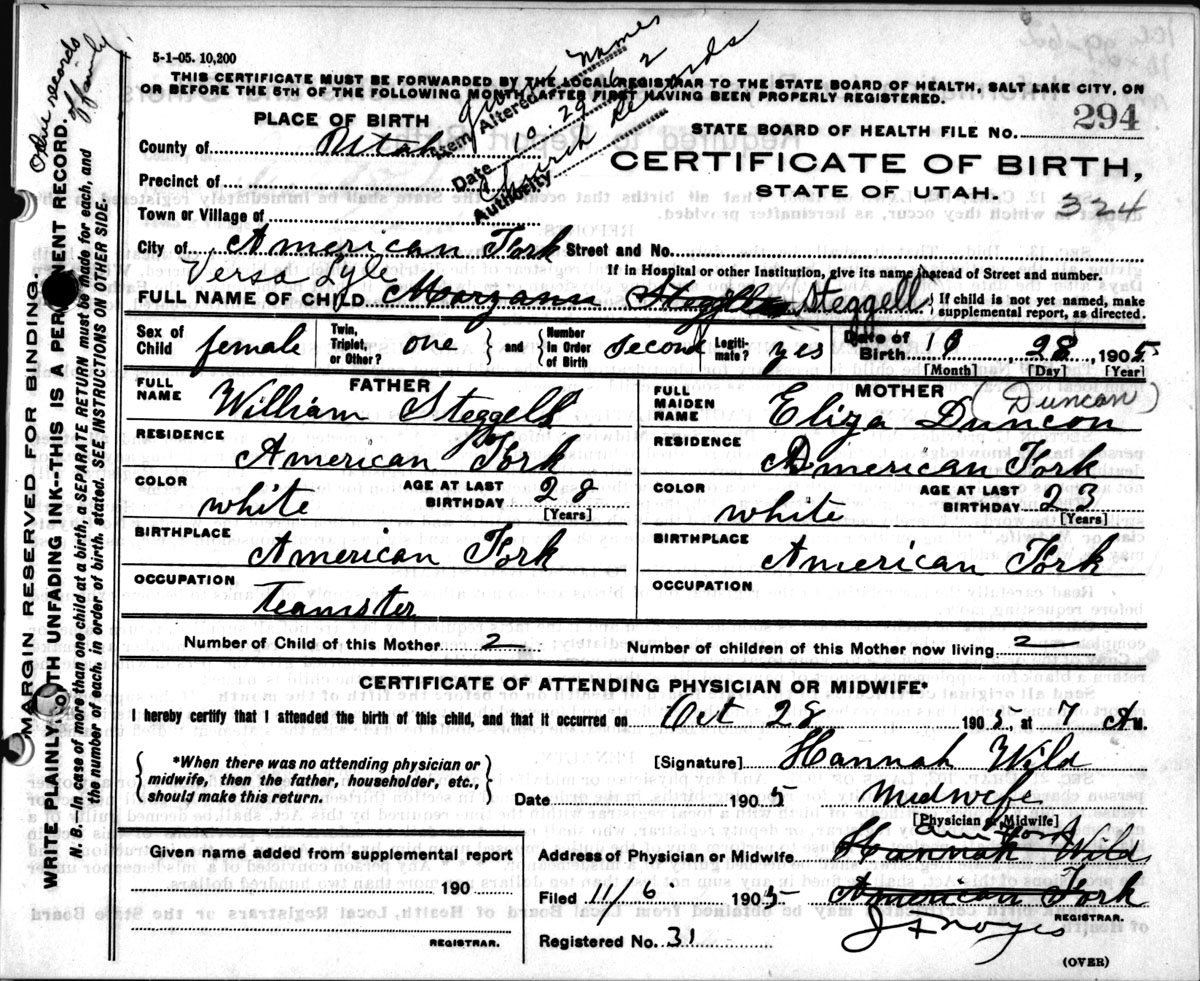 5-1-05. 10,200
THIS CERTIFICATE MUST BE FORWARDED BY THE LOCAL REGISTRAR TO THE STATE BOARD OF HEALTH, SALT LAKE CITY, ON
OR BEFORE THE 5TH OF THE FOLLOWING MONTH AFTER FIRST HAVING BEEN PROPERLY REGISTERED.
MARGIN RESERVED FOR BINDING.
WRITE PLAINLY WITH UNFADING INK--THIS IS A PERMANENT RECORD.
N. B. In case of more than one child at a birth, a SEPARATE RETURN must be made for each, and
the number of each, in order of birth, stated. SEE INSTRUCTIONS ON OTHER SIDE.
records
of family
Item Altered Given Names
Date 10.29.62
Authority Church Records
PLACE OF BIRTH
County of Utah
Precinct of
Town or Village of
City of American Fork Street and No.
STATE BOARD OF HEALTH FILE NO. 294
CERTIFICATE OF BIRTH,
STATE OF UTAH.
324
If in Hospital or other Institution, give its name instead of Street and number.
Versa Lyle
FULL NAME OF CHILD Steggell
If child is not yet named, make
supplemental report, as directed.
Sex of Child female
Twin, Triplet, or Other? one
and
Number in Order of Birth second
Legitimate? yes
Date of Birth 10, 28, 1905
[Month] [Day] [Year]
FATHER
FULL NAME William Steggell
RESIDENCE American Fork
COLOR white AGE AT LAST BIRTHDAY 28
[Years]
BIRTHPLACE American Fork
OCCUPATION Teamster
MOTHER
(Duncan)
FULL MAIDEN NAME Eliza Duncon
RESIDENCE American Fork
COLOR white AGE AT LAST BIRTHDAY 23
[Years]
BIRTHPLACE American Fork
OCCUPATION
Number of Child of this Mother 2 Number of children of this Mother now living 2
CERTIFICATE OF ATTENDING PHYSICIAN OR MIDWIFE*
I hereby certify that I attended the birth of this child, and that it occurred on Oct 28 1905 at 7 A M.
*When there was no attending physician or
midwife, then the father, householder, etc.,
should make this return.
[Signature] Hannah Wild
Date 1905 Midwife
[Physician or Midwife]
Given name added from supplemental report
190
REGISTRAR.
Address of Physician or Midwife Hannah Wild
Filed 11/6 1905 American Fork
REGISTRAR.
Registered No. 31
J F Noyes
(OVER)